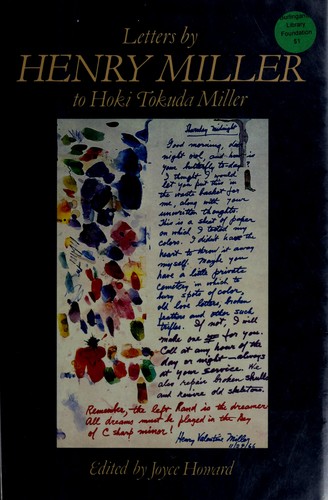 Letters by
HENRY MILLER
to Hoki Tokuda Miller
Burlingame
Library
Foundation
$1
Thursday midnight
Good morning, dear
night owl, and how is
your butterfly today?
I thought I would
let you put this in
the waste basket for
me, along with your
unwritten thoughts.
This is a sheet of paper
on which I tested my
colors. I didn't have the
heart to throw it away
myself. Maybe you
have a little private
cemetery in which to
bury spots of color,
old love letters, broken
and other such
trifles. If not, I will
make one for you.
Call at any hour of the
day or night—always
at your service. We
also repair broken skulls
and revive old skeletons.
Remember, the left hand is the dreamer
All dreams must be played in the key
of C sharp minor!
Henry Valentine Miller
Edited by Joyce Howard